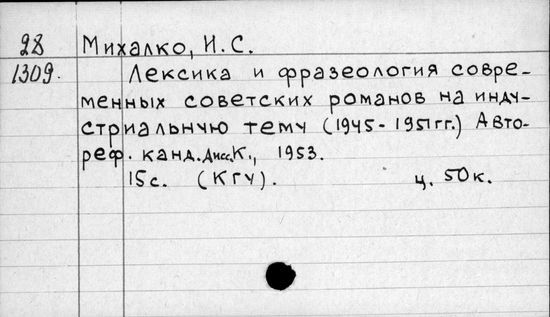 28 Михалко, И. С.
1309. Лексика и фразеология совре-
менных советских романов на инду-
стриальную тему (1945-1951гг.) Авто-
реф. канд. дисс. К., 1953.
15 с. (КГУ). ц. 50 к.